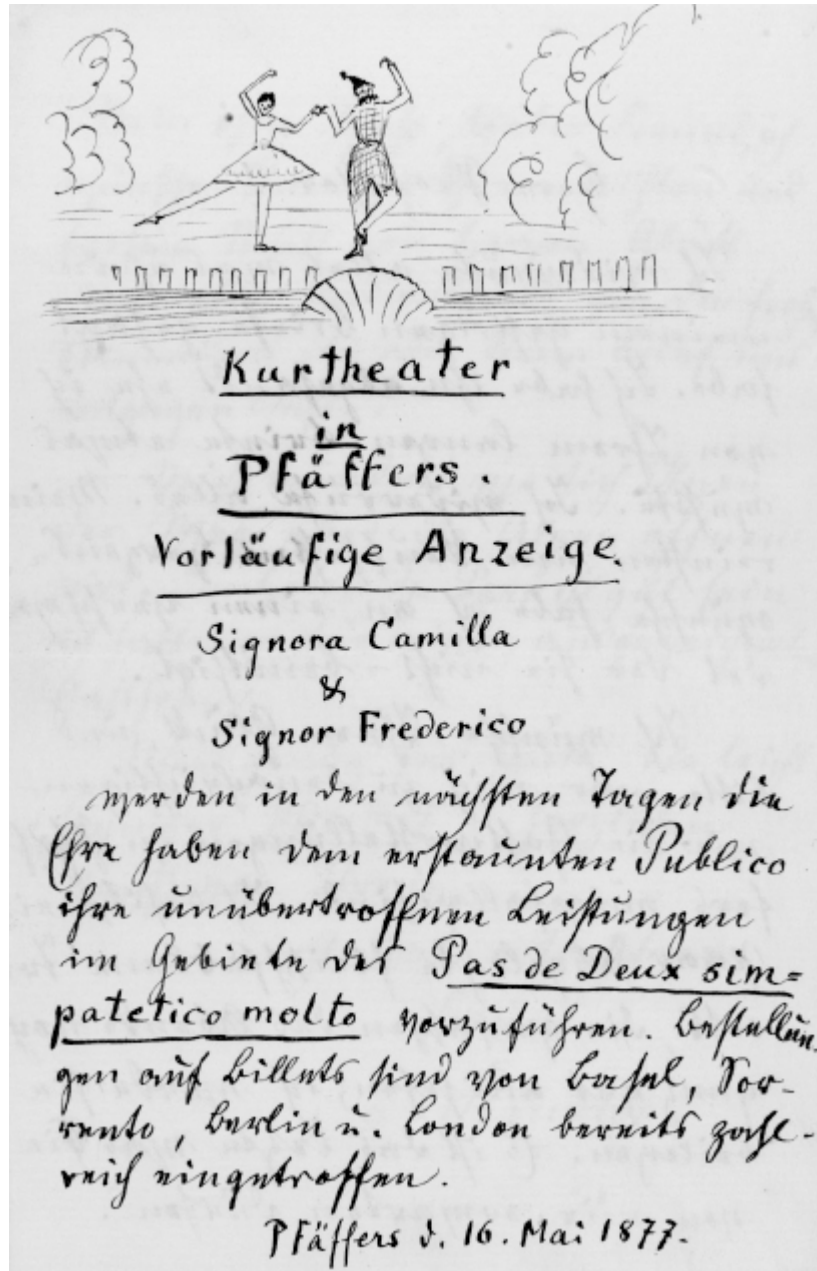 Kurtheater
in
Pfäffers.
Vorläufige Anzeige.
Signora Camilla
&
Signor Frederico
werden in den nächsten Tagen die
Ehre haben dem erstaunten Publico
ihre unübertroffnen Leistungen
im Gebiete des Pas de Deux sim=
patetico molto vorzuführen. Bestellun-
gen auf Billets sind von Basel, Sor-
rento, Berlin u. London bereits zahl-
reich eingetroffen.
Pfäffers d. 16. Mai 1877.